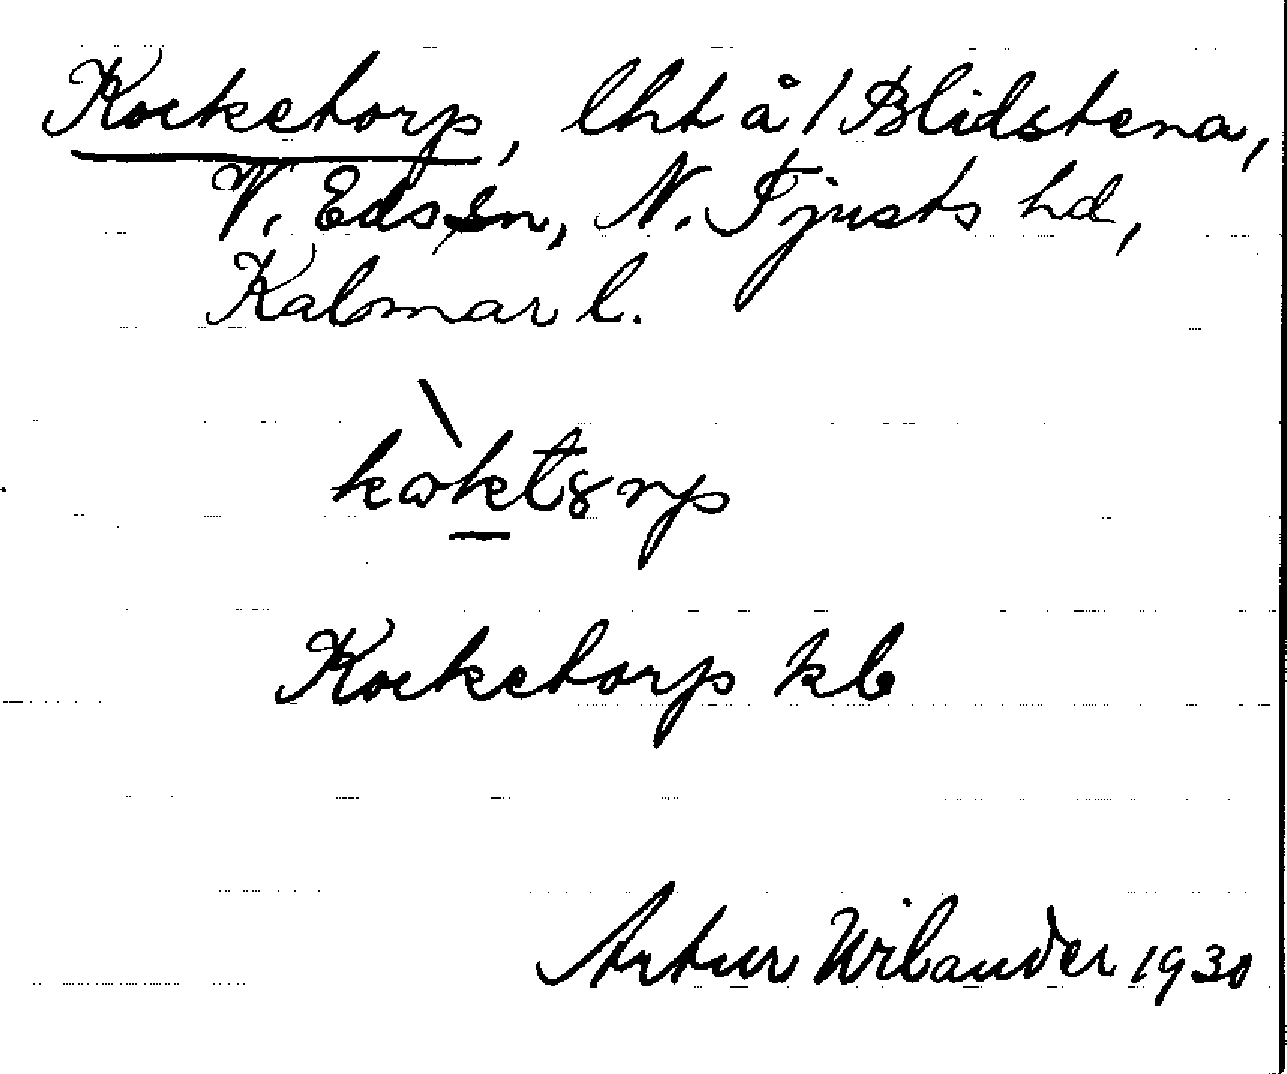 Kocketorp, lht å / Blidstena,
V. Eds sn, N. Tjusts hd,
Kalmar l.
kòktorp
Kocketorp kb
Artur Wilander 1930